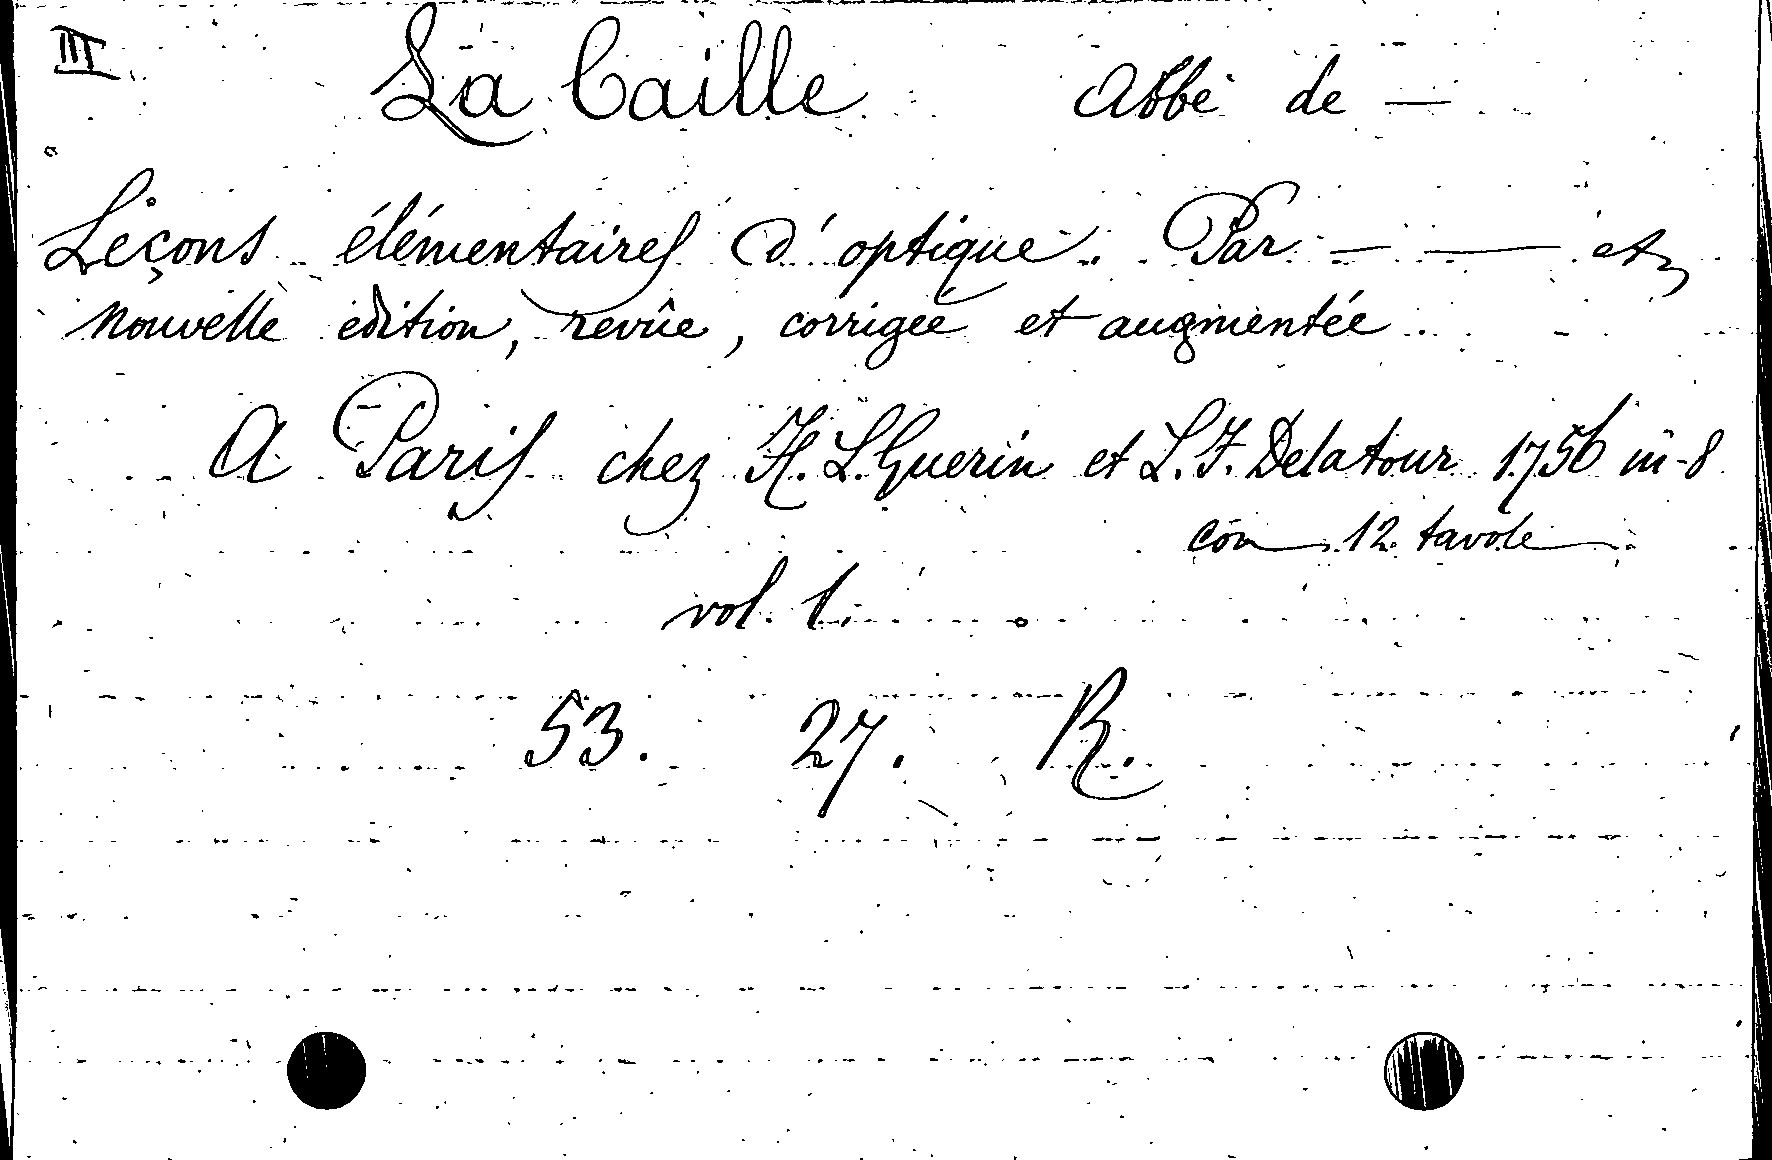 III
La Caille Abbé de —
Leçons élémentaires d'optique. Par — — etc
nouvelle édition, revûe, corrigée et augmentée
A Paris chez H. L. Guerin et L. F. Delatour 1756 in-8
con 12 tavole
vol. 1.
53. 27. R.